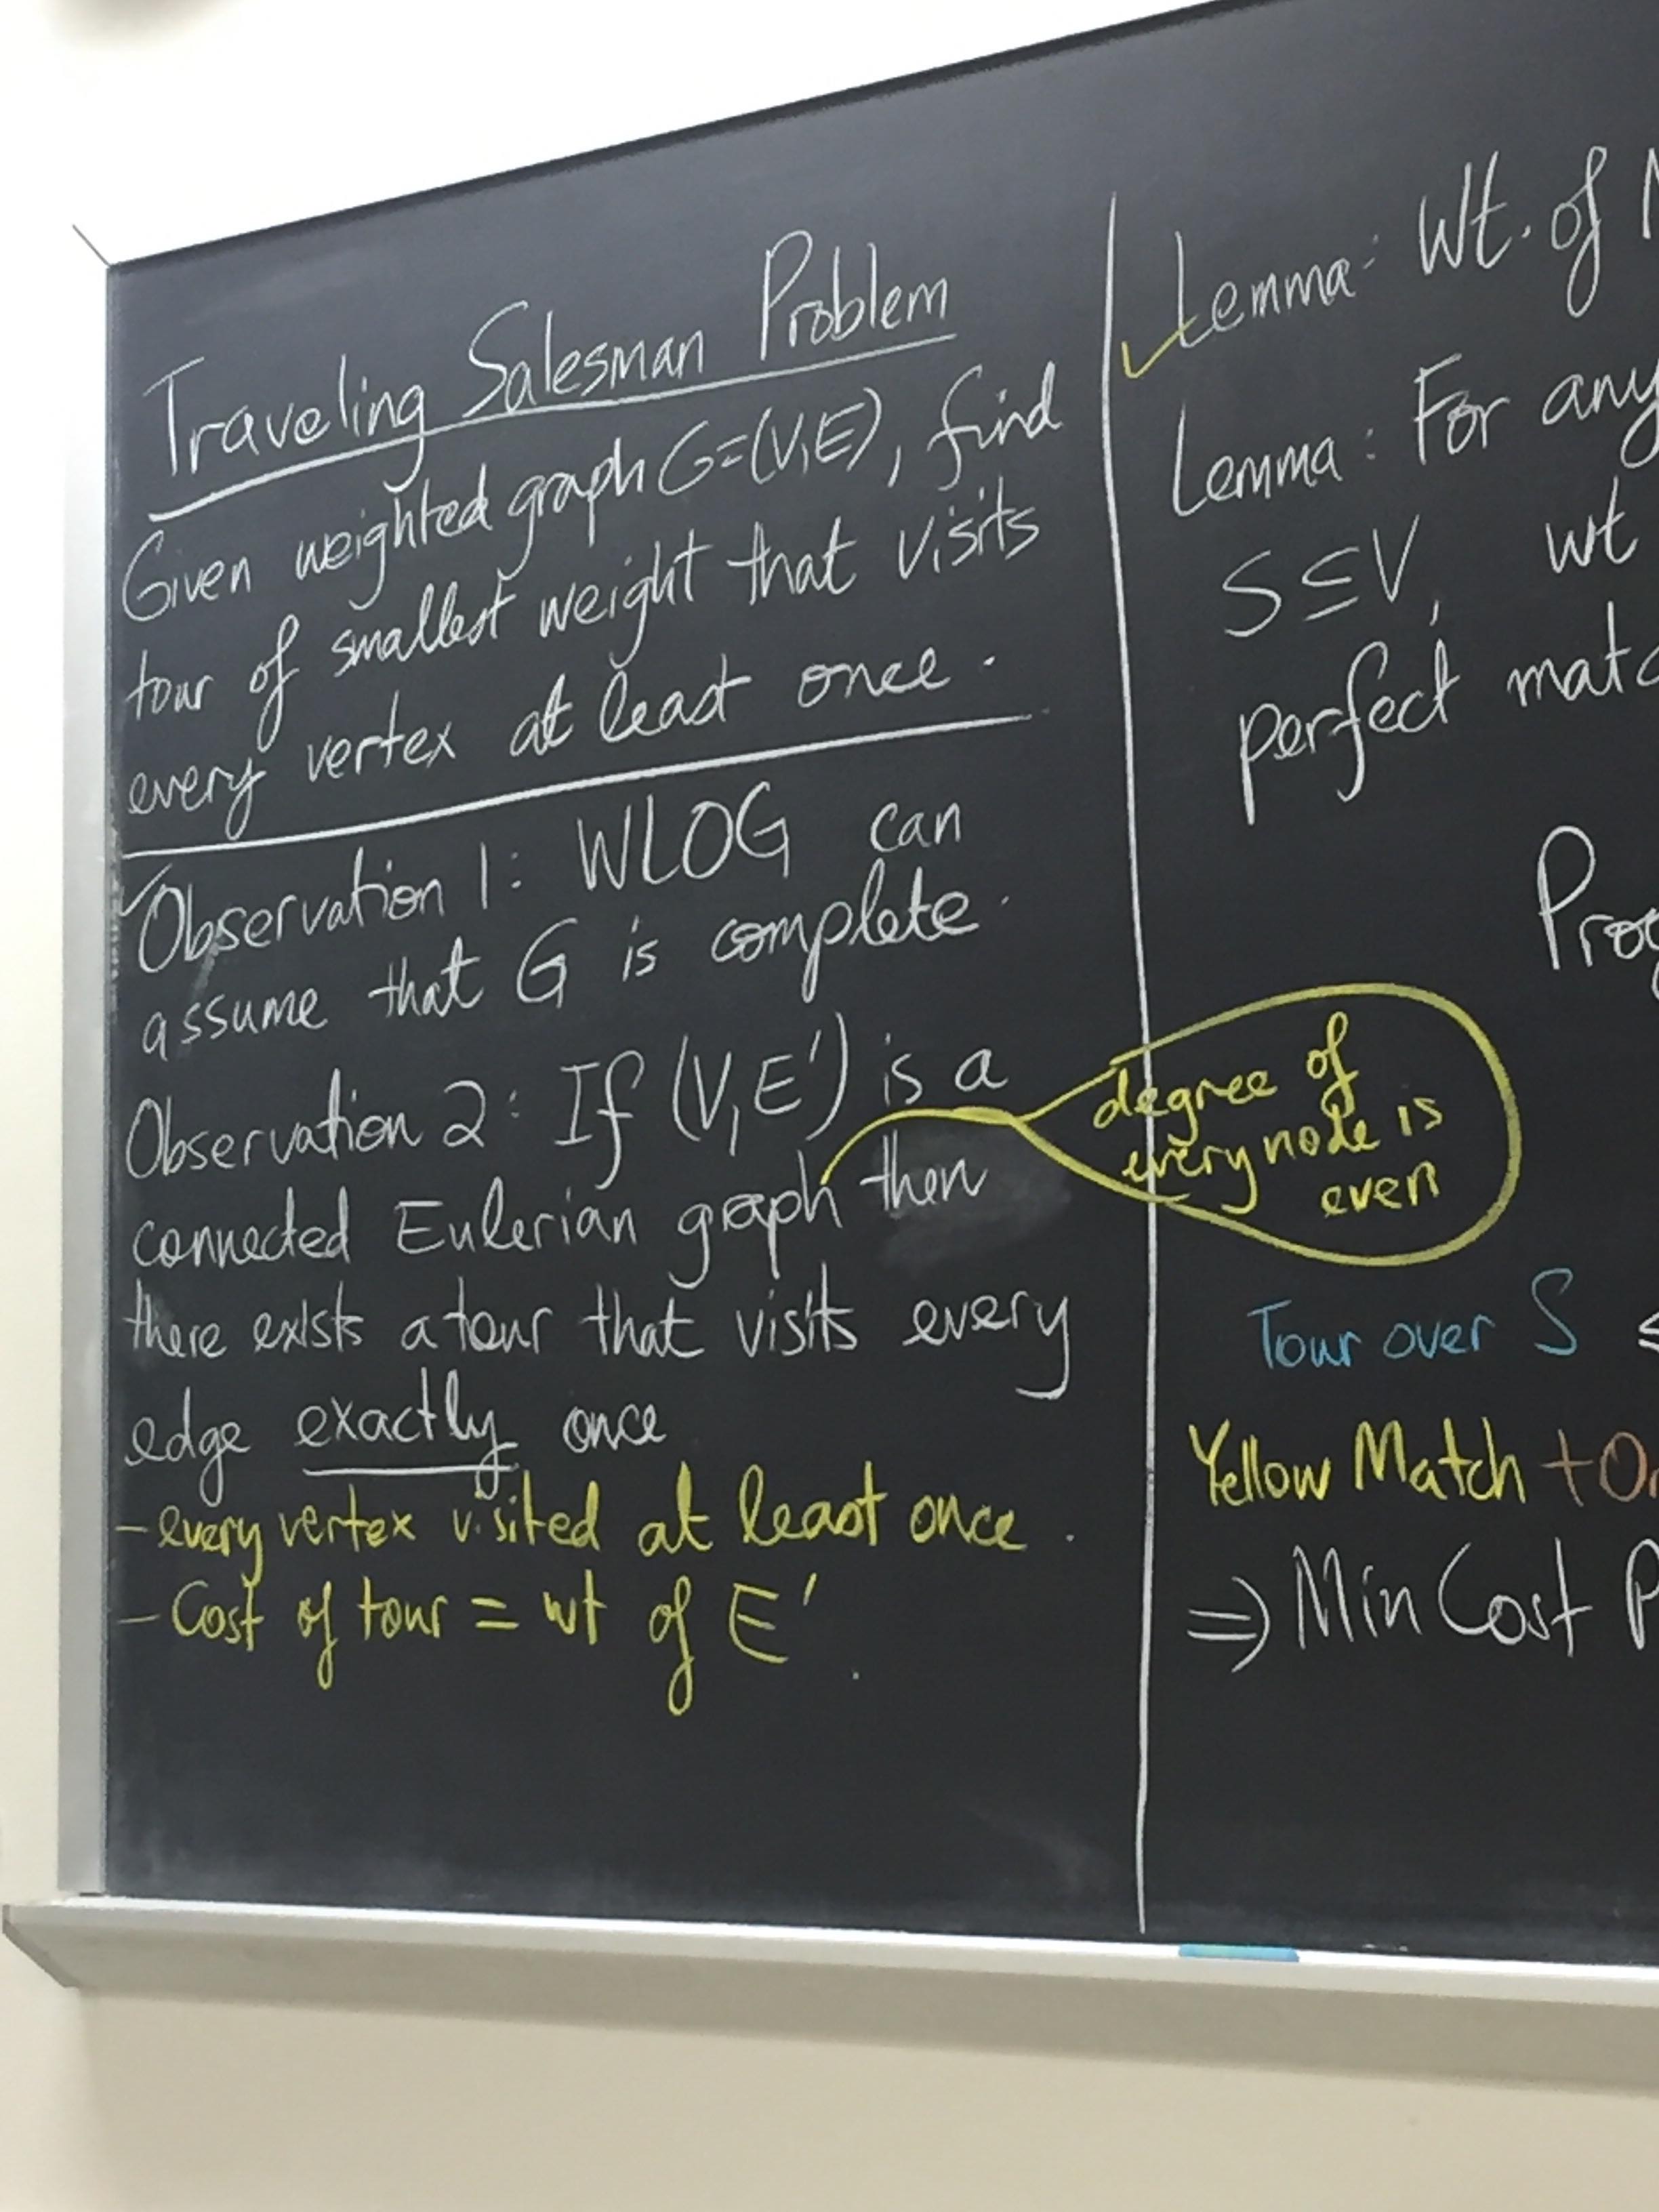 Traveling Salesman Problem
Given weighted graph G=(V,E), find
tour of smallest weight that visits
every vertex at least once.
Observation 1: WLOG can
assume that G is complete.
Observation 2: If (V,E') is a
connected Eulerian graph then
there exists a tour that visits every
edge exactly once
- every vertex visited at least once.
- Cost of tour = wt of E'
degree of
every node is
even
Lemma: Wt. of
Lemma: For any
S⊆V, wt
perfect matc
Tour over S
Yellow Match +
⇒ Min Cost P